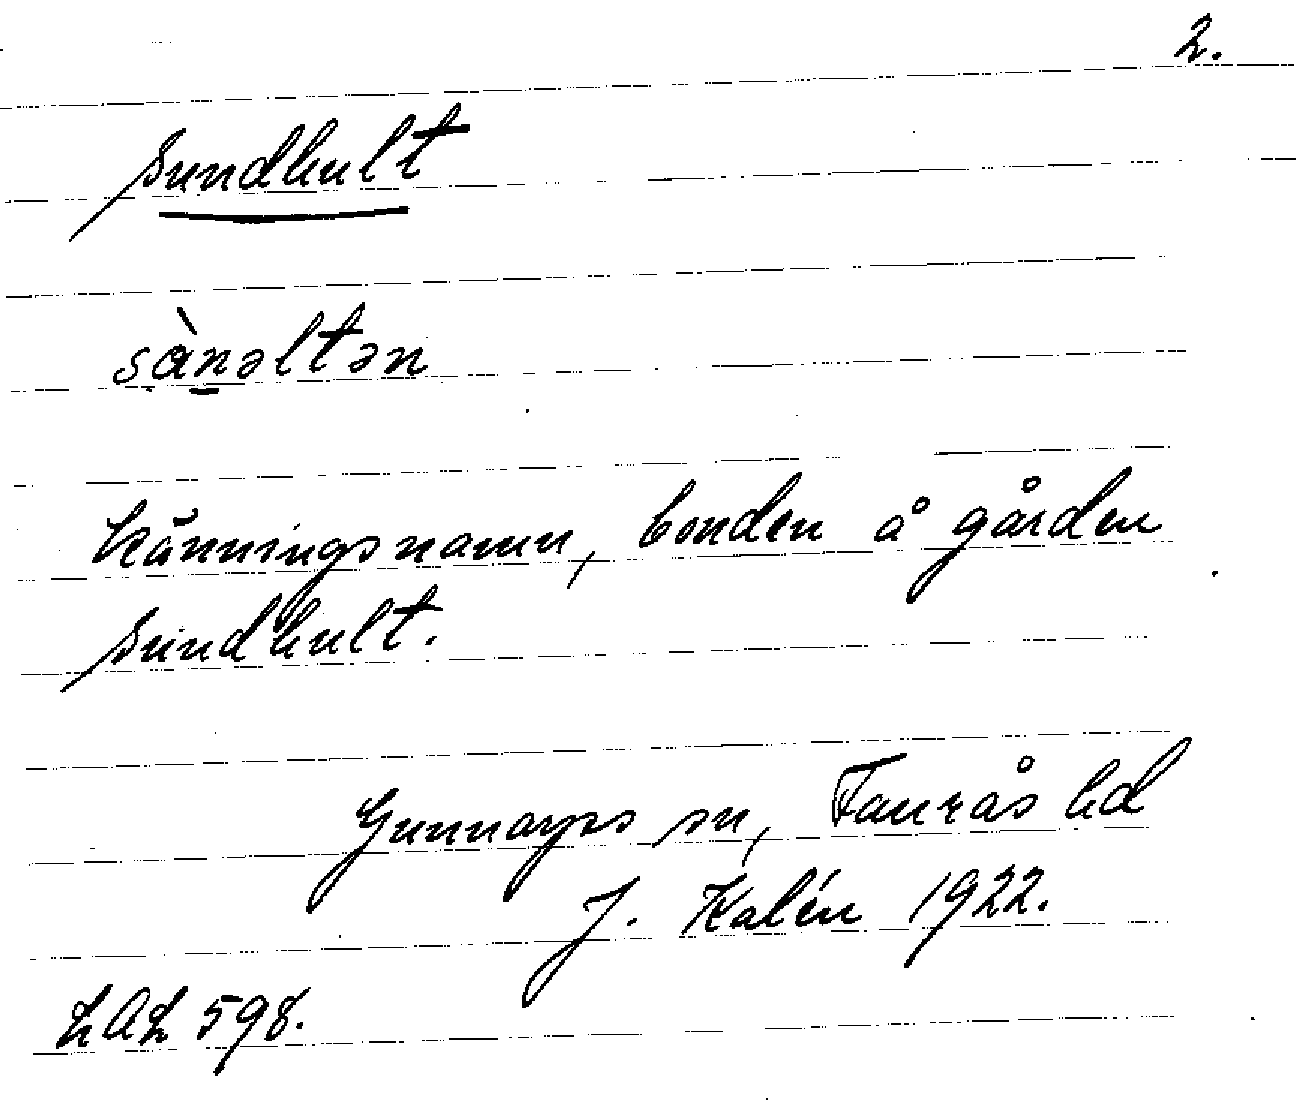 2.
Sundhult
sànəltən
känningsnamn, bonden å gården
Sundhult.
Gunnarps sn, Faurås hd
J. Kalén 1922.
LAL 598.